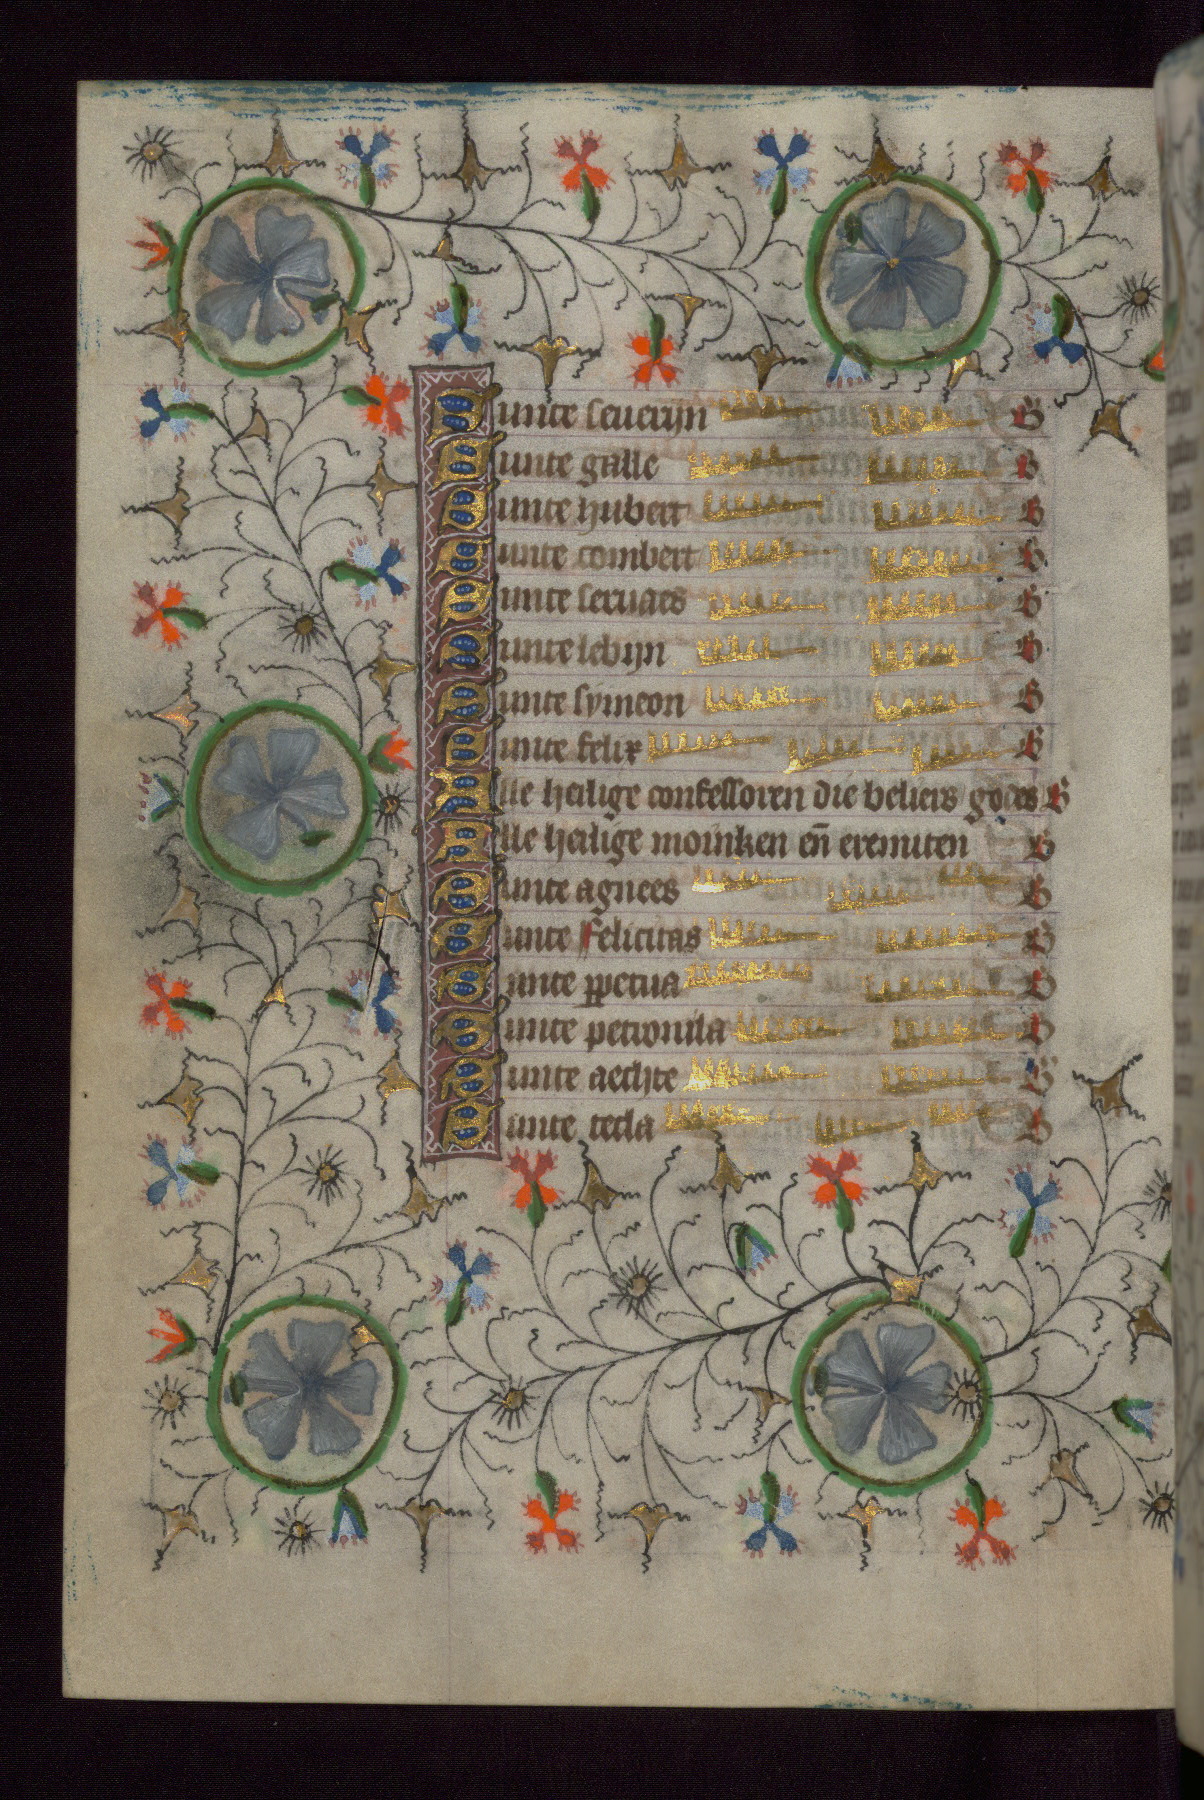 Sunte seueryn B
Sunte galle B
Sunte hubert B
Sunte combert B
Sunte seruaes B
Sunte lebyn B
Sunte symeon B
Sunte felix B
Alle heilige confessoren die beliers godes B
Alle heilige moniken en̄ eremiten B
Sunte agnees B
Sunte felicitas B
Sunte ꝑpetua B
Sunte petronila B
Sunte aechte B
Sunte tecla B